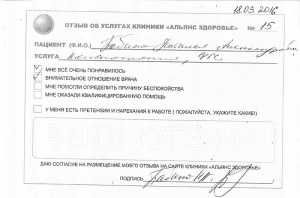 18.03.2016
ОТЗЫВ ОБ УСЛУГАХ КЛИНИКИ «АЛЬЯНС ЗДОРОВЬЕ» № 15
ПАЦИЕНТ (Ф.И.О.)
УСЛУГА
МНЕ ВСЁ ОЧЕНЬ ПОНРАВИЛОСЬ
ВНИМАТЕЛЬНОЕ ОТНОШЕНИЕ ВРАЧА
МНЕ ПОМОГЛИ ОПРЕДЕЛИТЬ ПРИЧИНУ БЕСПОКОЙСТВА
МНЕ ОКАЗАЛИ КВАЛИФИЦИРОВАННУЮ ПОМОЩЬ
У МЕНЯ ЕСТЬ ПРЕТЕНЗИИ И НАРЕКАНИЯ К РАБОТЕ ( ПОЖАЛУЙСТА, УКАЖИТЕ КАКИЕ)
ДАЮ СОГЛАСИЕ НА РАЗМЕЩЕНИЕ МОЕГО ОТЗЫВА НА САЙТЕ КЛИНИКИ «АЛЬЯНС ЗДОРОВЬЕ»
ПОДПИСЬ